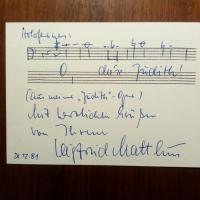 Holofernes:
O diese Judith!
(Aus meiner „Judith"-Oper)
Mit herzlichen Grüßen
von Ihrem
Siegfried Matthus